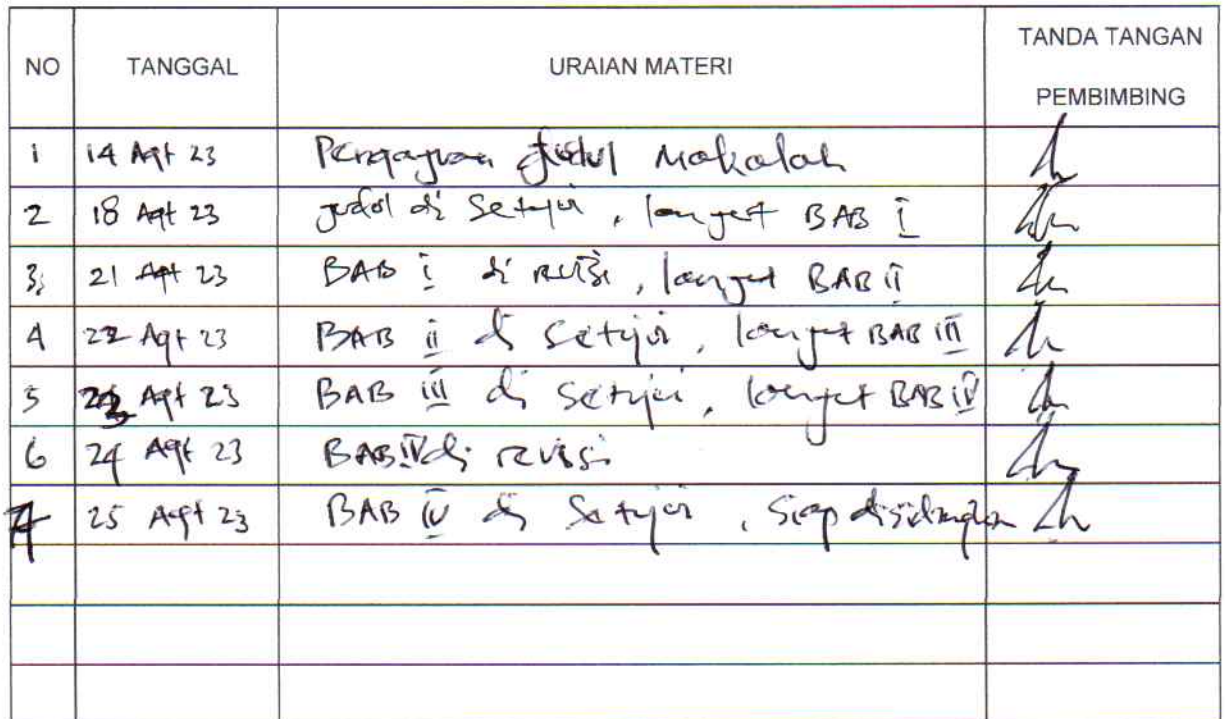 NO TANGGAL URAIAN MATERI TANDA TANGAN PEMBIMBING
1 14 Agt 23 Pengajuan Judul Makalah
2 18 Agt 23 judul di setujui, lanjut BAB I
3 21 Agt 23 BAB I di revisi, lanjut BAB II
4 22 Agt 23 BAB II di setujui, lanjut BAB III
5 23 Agt 23 BAB III di setujui, lanjut BAB IV
6 24 Agt 23 BAB IV di revisi
7 25 Agt 23 BAB IV di setujui, siap disidangkan